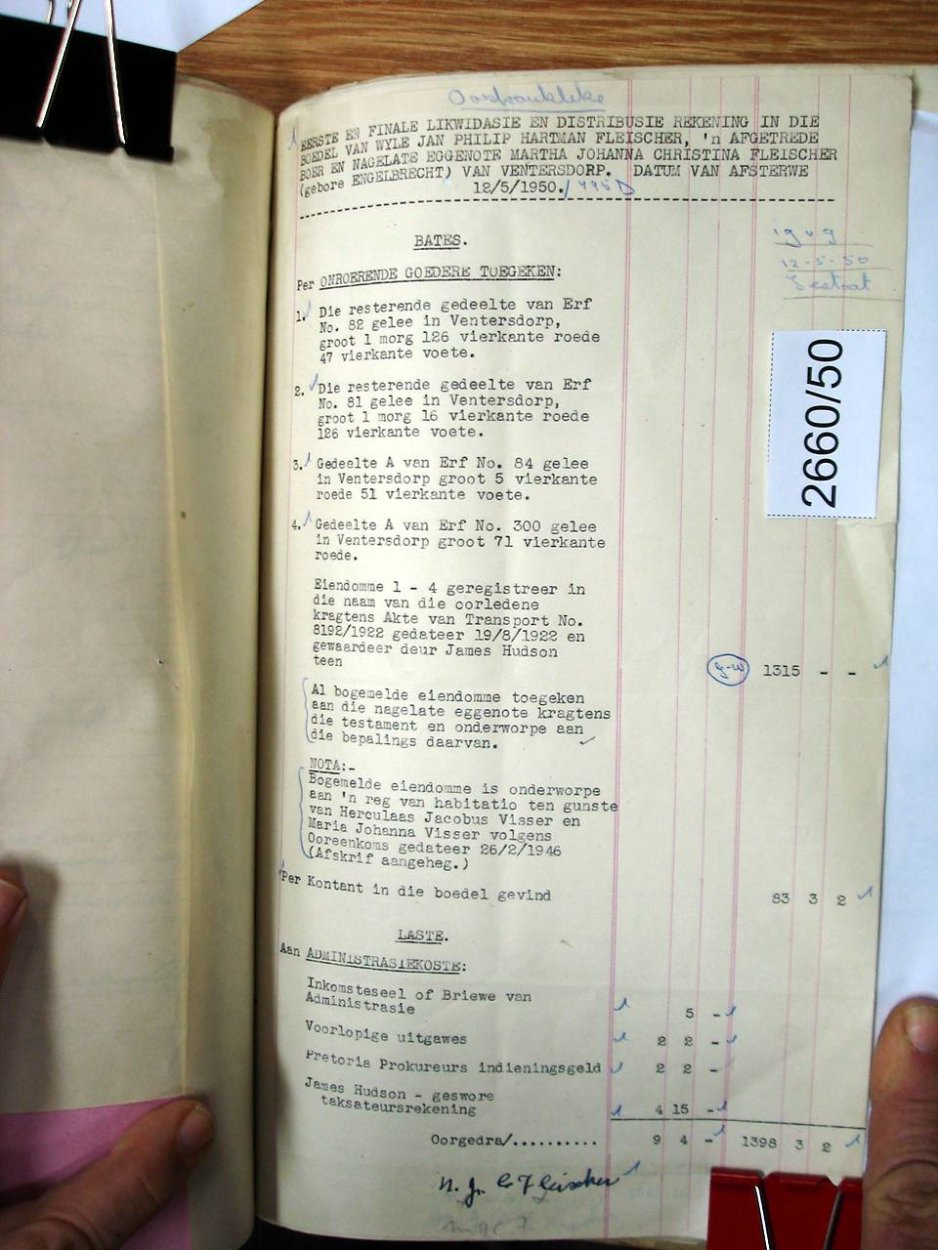 Oorspronklike
EERSTE EN FINALE LIKWIDASIE EN DISTRIBUSIE REKENING IN DIE
BOEDEL VAN WYLE JAN PHILIP HARTMAN FLEISCHER, 'n AFGETREDE
BOER EN NAGELATE EGGENOTE MARTHA JOHANNA CHRISTINA FLEISCHER
(gebore ENGELBRECHT) VAN VENTERSDORP. DATUM VAN AFSTERWE
12/5/1950.
BATES.
12-5-50
Testaat
Per ONROERENDE GOEDERE TOEGEKEN:
1. Die resterende gedeelte van Erf
No. 82 gelee in Ventersdorp,
groot 1 morg 126 vierkante roede
47 vierkante voete.
2. Die resterende gedeelte van Erf
No. 81 gelee in Ventersdorp,
groot 1 morg 16 vierkante roede
126 vierkante voete.
3. Gedeelte A van Erf No. 84 gelee
in Ventersdorp groot 5 vierkante
roede 51 vierkante voete.
4. Gedeelte A van Erf No. 300 gelee
in Ventersdorp groot 71 vierkante
roede.
2660/50
Eiendomme 1 - 4 geregistreer in
die naam van die oorledene
kragtens Akte van Transport No.
8192/1922 gedateer 19/8/1922 en
gewaardeer deur James Hudson
teen 1315 - -
Al bogemelde eiendomme toegeken
aan die nagelate eggenote kragtens
die testament en onderworpe aan
die bepalings daarvan.
NOTA:-
Bogemelde eiendomme is onderworpe
aan 'n reg van habitatio ten gunste
van Herculaas Jacobus Visser en
Maria Johanna Visser volgens
Ooreenkoms gedateer 26/2/1946
(Afskrif aangeheg.)
Per Kontant in die boedel gevind 83 3 2
LASTE.
Aan ADMINISTRASIEKOSTE:
Inkomsteseel of Briewe van
Administrasie 5 -
Voorlopige uitgawes 2 2 -
Pretoria Prokureurs indieningsgeld 2 2 -
James Hudson - geswore
taksateursrekening 4 15 -
Oorgedra/.......... 9 4 - 1398 3 2
Fleischer